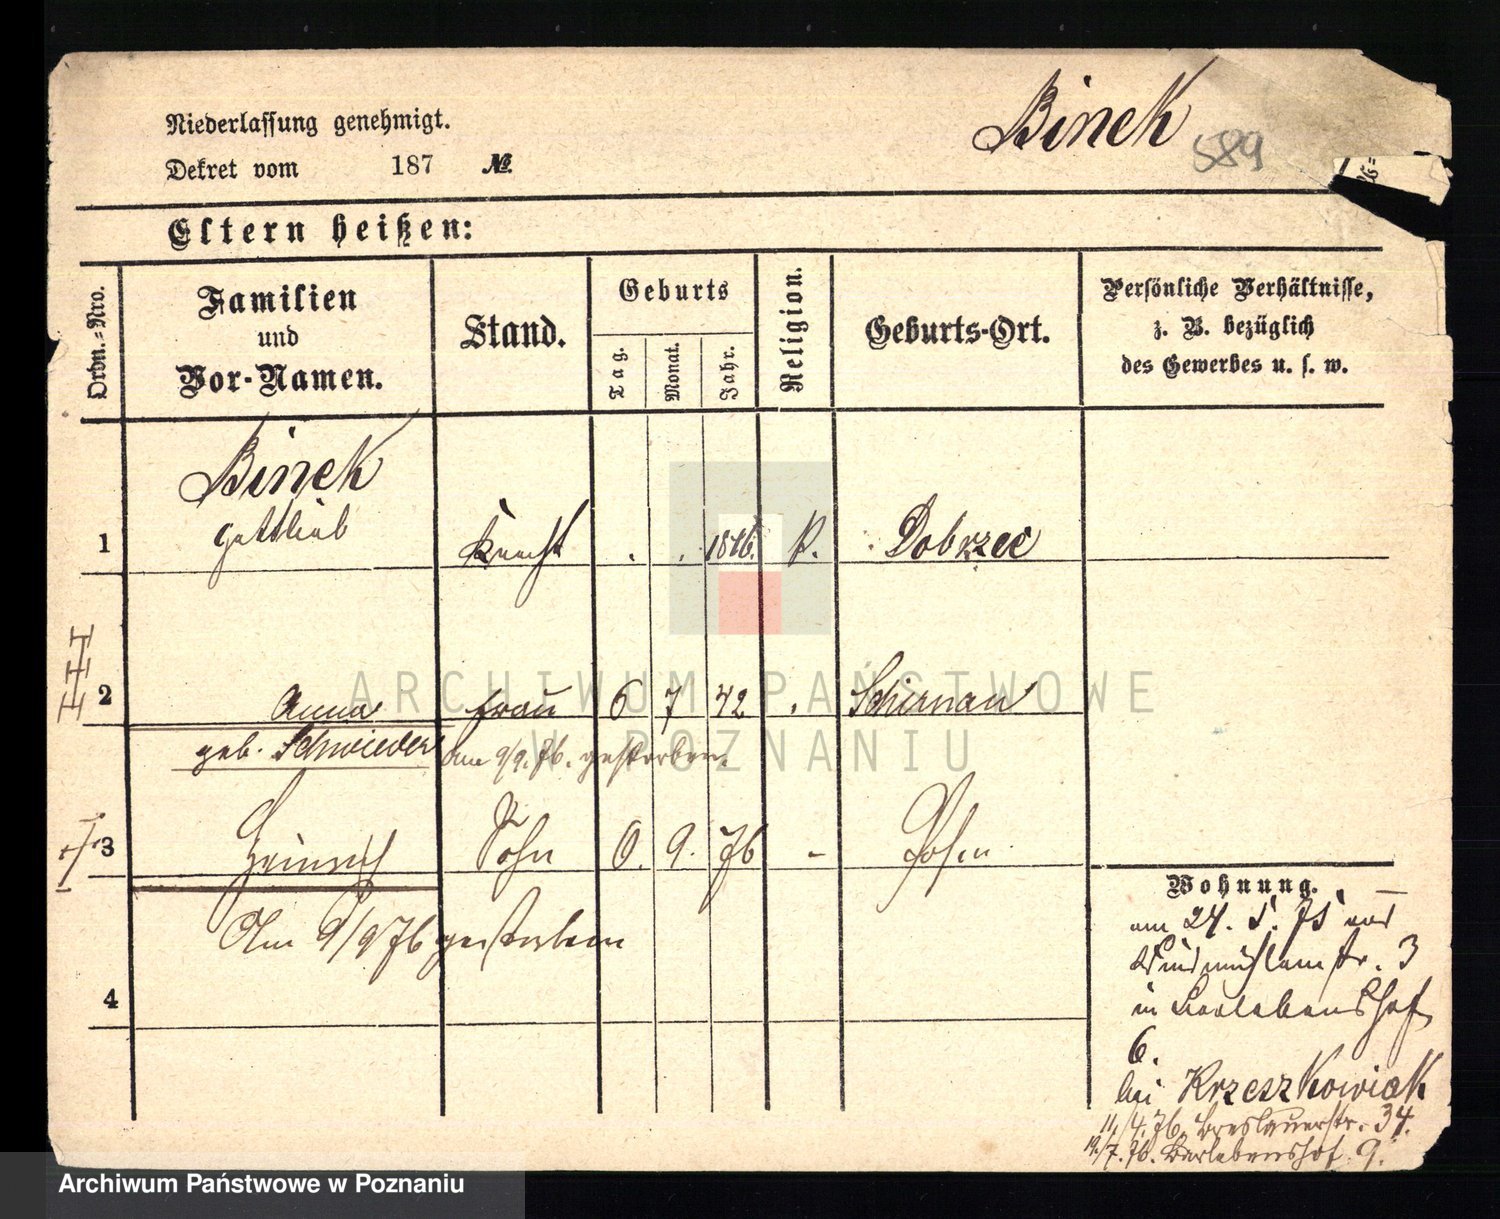 Niederlassung genehmigt.
Binek
589
Dekret vom 187 №.
Eltern heißen:
Ordn.-Nro.
Familien
und
Vor-Namen.
Stand.
Geburts
Tag.
Monat.
Jahr.
Religion.
Geburts-Ort.
Persönliche Verhältnisse,
z. B. bezüglich
des Gewerbes u. s. w.
Binek
1 Gottlieb Knecht . . K. Dobrzec
2 Anna Frau 6 7 42 . Schirnau
geb. Schwieder am 9/9.76. gestorben.
3 Heinrich Sohn 6. 9. 76 - Posen
Am 9/9 76 gestorben
4
Wohnung.
am 24. 5. 75 von
Windmühlenstr. 3
in Berlebenshof
6.
bei Krzeszkowiak
11./4. 76. Breslauerstr. 34.
19./7. 76. Berlebenshof. 9.
ARCHIWUM PAŃSTWOWE
W POZNANIU
Archiwum Państwowe w Poznaniu